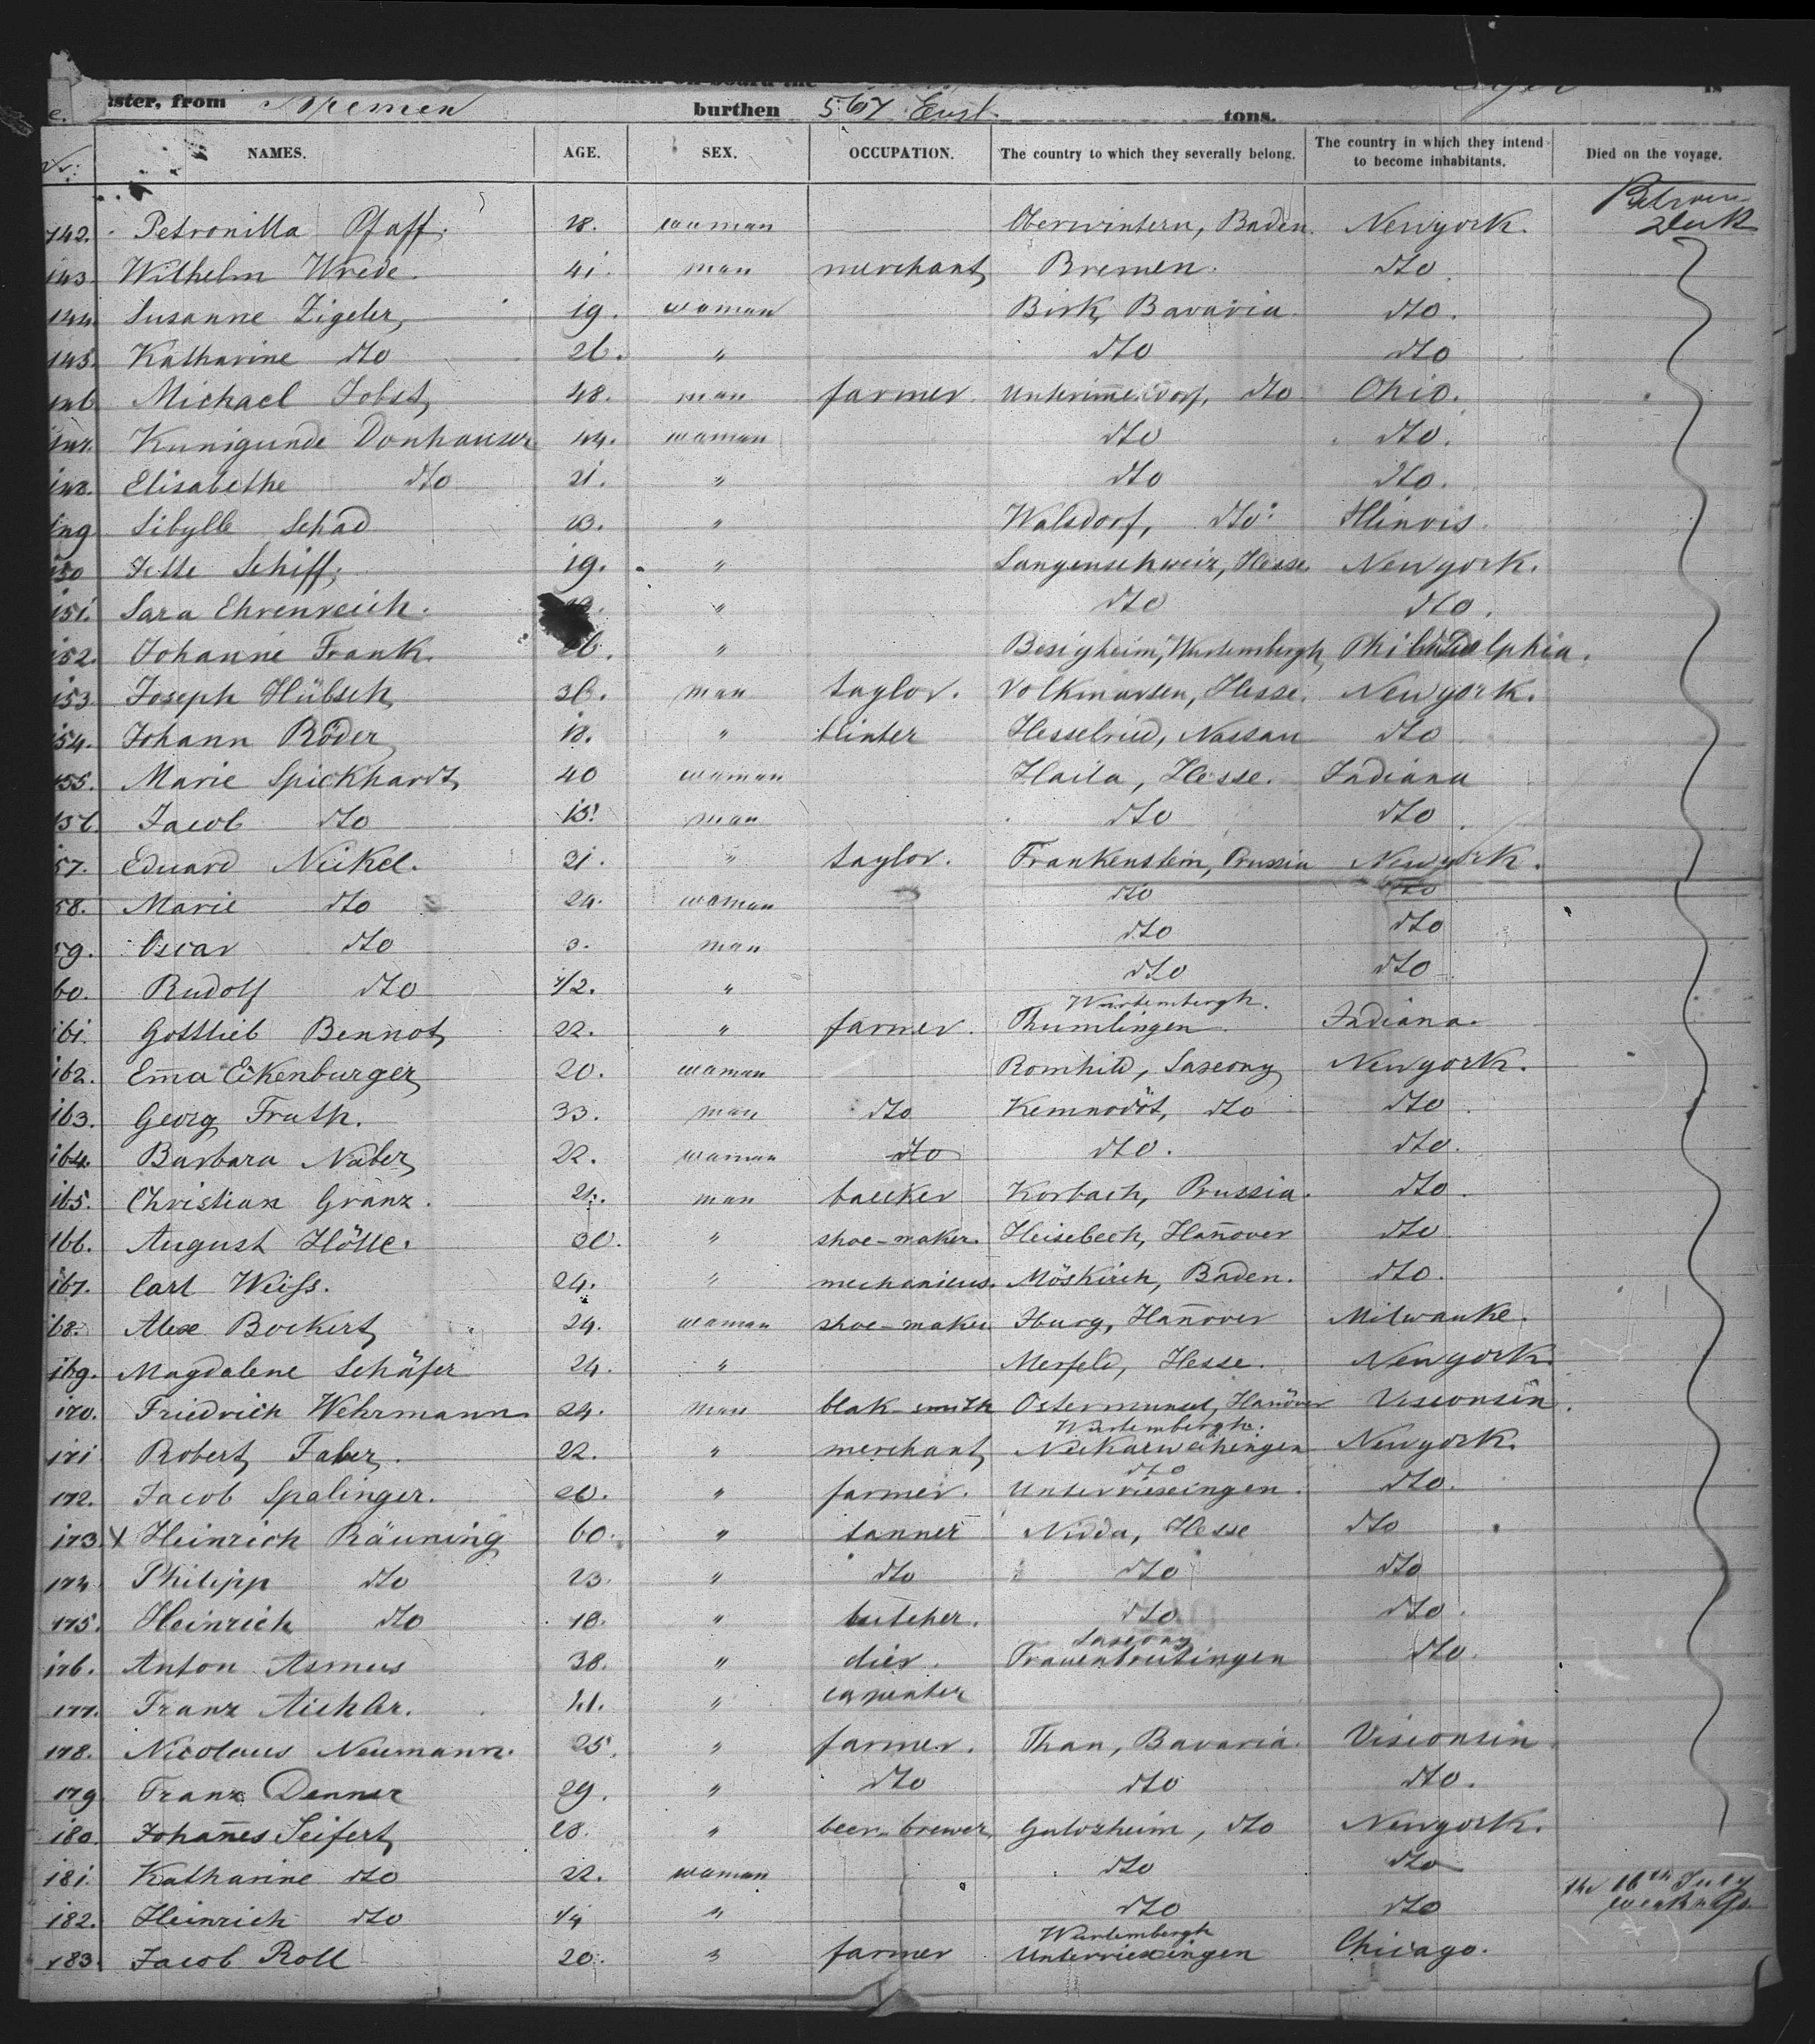 ster, from Bremen burthen 567 tons.
NAMES. AGE. SEX. OCCUPATION. The country to which they severally belong. The country in which they intend to become inhabitants. Died on the voyage.
142. Petronilla Pfaff. 18. waman Oberwintern, Baden. Newyork. Between Deck
143. Wilhelm Wrede. 41. man merchant Bremen. dto
144. Susanne Zigeler, 19. waman Birk, Bavaria. dto.
145. Katharine dto 26. " dto dto
146. Michael Jobst, 48. man farmer. dto Ohio.
147. Kunigunde Donhauser 44. waman dto dto.
148. Elisabethe dto 21. " dto dto.
149 Sibylle Schad " Walsdorf, dto. Illinois.
150 Jette Schiff, 19. " Langenschweir, Hesse. Newyork.
151. Sara Ehrenreich. " dto dto.
152. Johanne Frank. " Besigheim, Wurtembergh, Philadelphia.
153. Joseph Hübsch, 36. man taylor. Volkmarsen, Hesse. Newyork.
154. Johann Röder, 18. " Nassau dto
155. Marie Spickhardt, 40 waman Haila, Hesse. Indiana
156. Jacob dto 15. man dto dto
57. Eduard Nickel. 31. " taylor. Frankenstein, Prussia Newyork.
58. Marie dto 24. waman dto dto
59. Oscar dto 3. man dto dto
60. Rudolf dto 1/2. " dto dto.
161. Gottlieb Bennot, 22. " farmer. Wurtembergh. Thumlingen. Indiana.
162. Em̄a Eikenburger, 20. waman Romhild, Saxony Newyork.
163. Georg Fruth. 33. man dto dto dto
164. Barbara Naber, 22. waman dto dto. dto.
165. Christian Gränz. 21. man baecker Korbach, Prussia. dto.
166. August Hölle. 30. " shoe-maker. Heisebeck, Han̄over dto
167. Carl Weiss. 24. " mechanicus. Möskirch, Baden. dto.
168. Alex Bockert, 24. waman shoe-maker Iburg, Han̄over Milwauke.
169. Magdalene Schäfer 24. " Merfeld, Hesse. Newyork.
170. Friedrich Wehrmann. 24. man blak-smith Visconsin.
171. Robert Faber. 22. " merchant, Wurtembergh. Neckarweihingen Newyork.
172. Jacob Spalinger. 20. " farmer. dto Unterriexingen. dto.
173. X Heinrich Räuning, 60. " tanner Nidda, Hesse dto
174. Philipp dto 23. " dto dto dto
175. Heinrich dto 18. " butcher. dto dto.
176. Anton Asmus 38. " dier. Saxony Frauenbreitingen dto.
177. Franz Aichler. 41. " carpenter
178. Nicolaus Neumann. 25. " farmer. Than, Bavaria. Visconsin.
179. Franz Denner 29. " dto dto dto.
180. Johan̄es Seifert, 28. " beer-brewer, dto Newyork.
181. Katharine dto 22. waman dto dto
182. Heinrich dto 1/4 " dto dto the 16th July weakness.
183. Jacob Roll 20. " farmer Wurtembergh Unterriexingen Chicago.